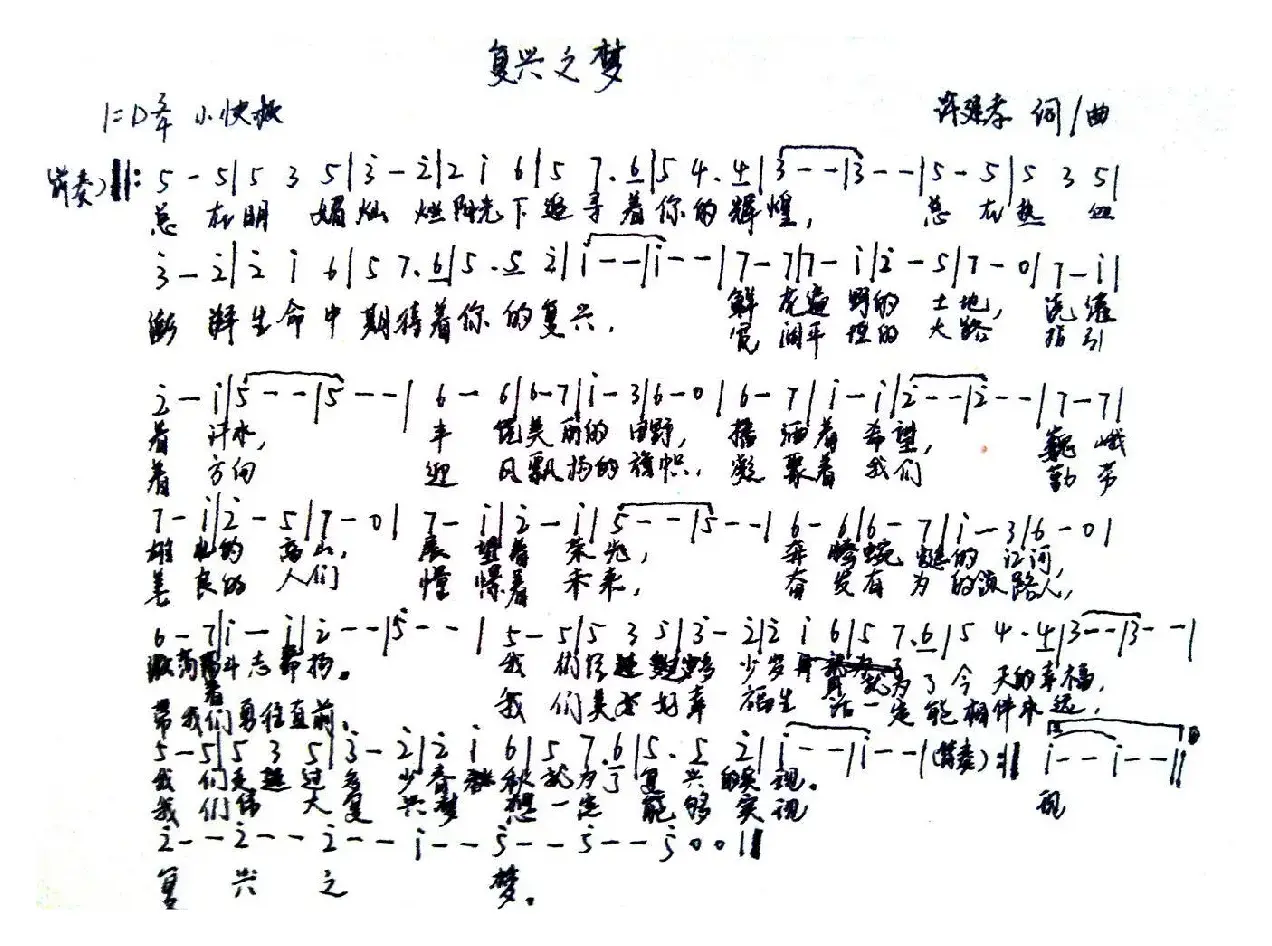 复兴之梦
1=D 3/4 小快板 许建孝 词/曲
(前奏)‖: 5 - 5|5 3 5|3̇ - 2̇|2̇ i 6|5 7. 6|5 4. 4|3 - - |3 - - |5 - 5|5 3 5|
总 在明 媚灿 烂阳光下追寻着你的辉煌, 总 在热 血
3̇ - 2̇|2̇ i 6|5 7. 6|5. 5 2̇|i - - |i - - |7 - 7|7 - i|2̇ - 5|7 - 0|7 - i|
澎 湃生命中期待着你的复兴. 鲜 花遍 野的 土地, 浇灌
宽 阔平 坦的 大路 指引
2̇ - i|5 - - |5 - - | 6 - 6|6 - 7|i - 3|6 - 0|6 - 7|i - i|2̇ - - |2̇ - - |7 - 7|
着 汗水, 丰 饶美丽的田野, 播洒着 希望, 巍峨
着 方向 迎 风飘扬的旗帜. 凝聚着 我们 勤劳
7 - i|2̇ - 5|7 - 0| 7 - i|2̇ - i|5 - - |5 - - | 6 - 6|6 - 7|i - 3|6 - 0|
雄壮的 高山, 展望着 荣光, 奔腾蜿蜒的 江河,
善良的 人们 憧憬着 未来, 奋发有为的 路人,
6 - 7|i - i|2̇ - - |5̇ - - | 5 - 5|5 3 5|3̇ - 2̇|2̇ i 6|5 7. 6|5 4. 4|3 - - |3 - - |
斗志昂扬. 我 们 少岁月 就为了今天的幸福,
带着我们勇往直前. 我 们美好幸 福生 活一定能相伴永远,
5 - 5|5 3 5|3̇ - 2̇|2̇ i 6|5 7. 6|5. 5 2̇|i - - |i - - |(前奏):‖ i - - i - - ‖
我 们走 过多 少春 秋就为了复兴的实现. 现
我 们伟 大复 兴梦 想一定能够实现
2̇ - - 2̇ - - 2̇ - - i - - 5̇ - - 5̇ - - 5̇ 0 0 ‖
复 兴 之 梦.